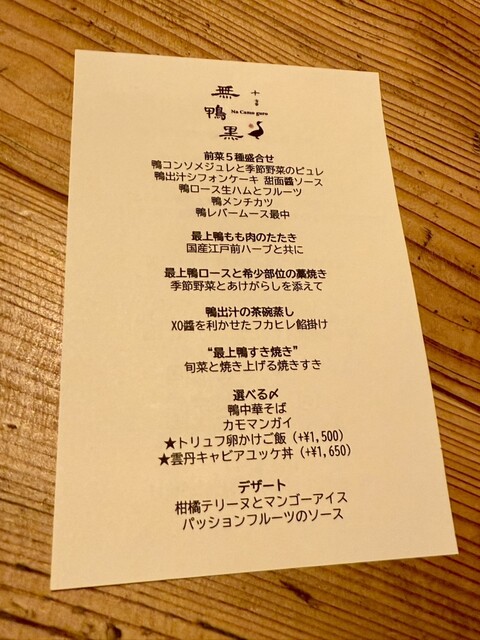 無
十
鴨
Na Camo guro
黒
前菜５種盛合せ
鴨コンソメジュレと季節野菜のピュレ
鴨出汁シフォンケーキ 甜面醤ソース
鴨ロース生ハムとフルーツ
鴨メンチカツ
鴨レバームース最中
最上鴨もも肉のたたき
国産江戸前ハーブと共に
最上鴨ロースと希少部位の藁焼き
季節野菜とあけがらしを添えて
鴨出汁の茶碗蒸し
XO醬を利かせたフカヒレ餡掛け
“最上鴨すき焼き”
旬菜と焼き上げる焼きすき
選べる〆
鴨中華そば
カモマンガイ
★トリュフ卵かけご飯（+¥1,500）
★雲丹キャビアユッケ丼（+¥1,650）
デザート
柑橘テリーヌとマンゴーアイス
パッションフルーツのソース